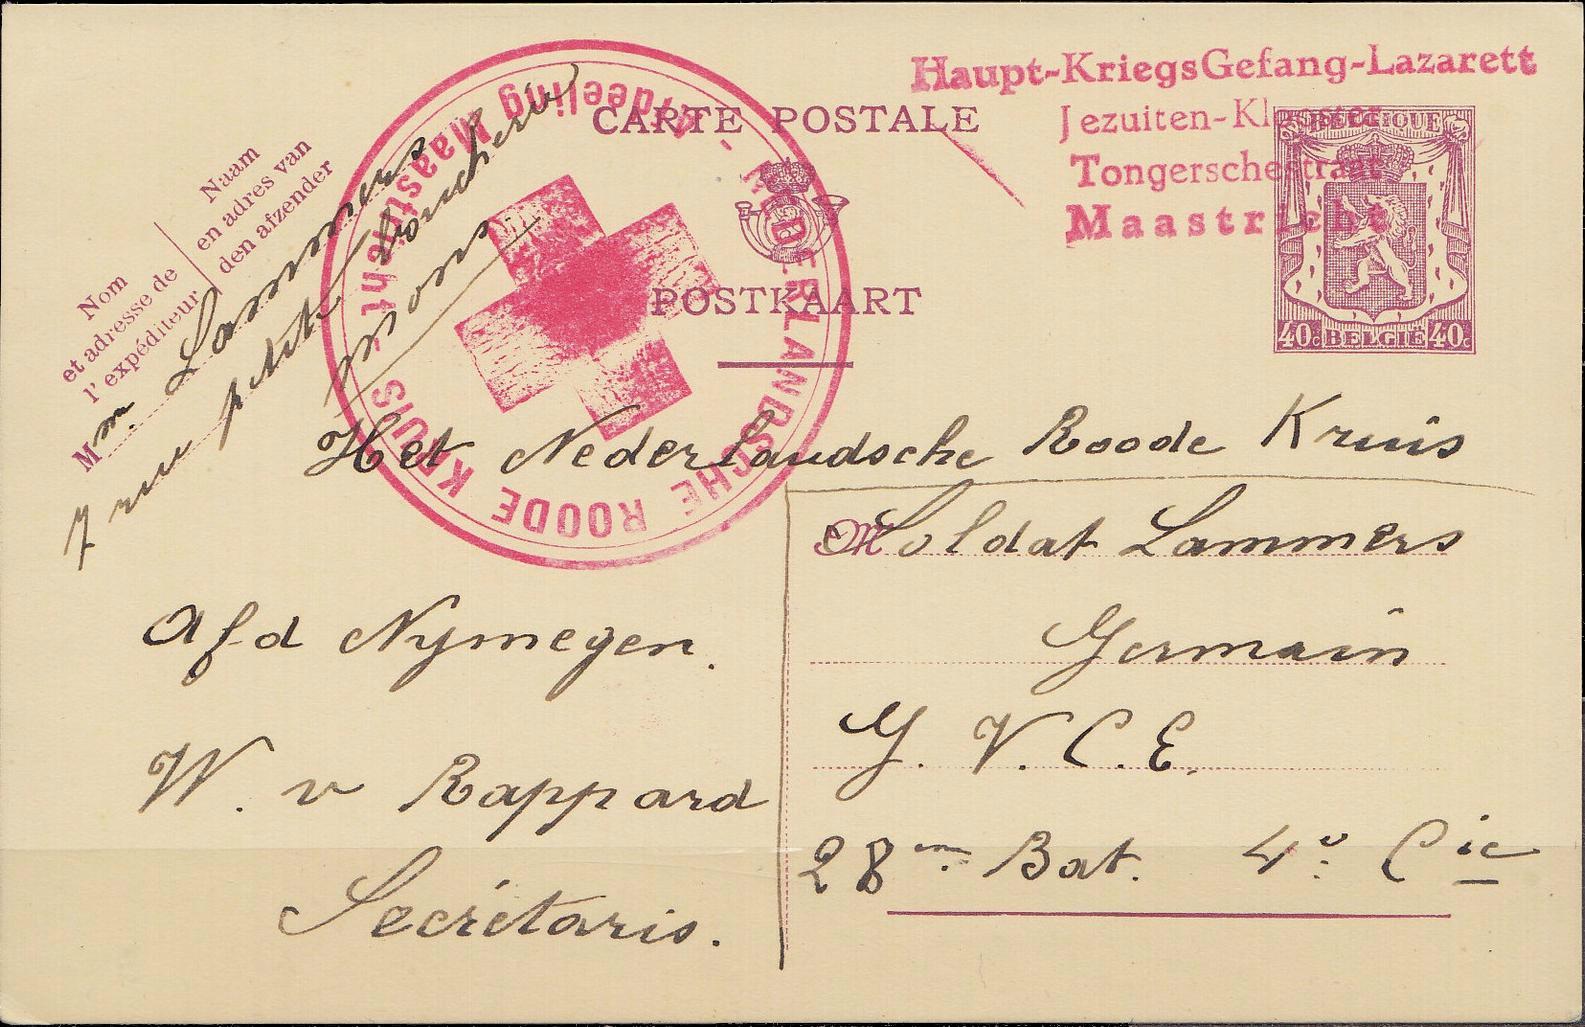 Haupt-KriegsGefang-Lazarett
Jezuiten-Klooster
Tongerschestraat
Maastricht
CARTE POSTALE
POSTKAART
BELGIQUE
40c BELGIË 40c
NEDERLANDSCHE ROODE KRUIS
- Afdeeling Maastricht -
Naam
en adres van
den afzender
Nom
et adresse de
l'expéditeur
Mm Lammers
7 rue petite boucherie
mons
Het Nederlandsche Roode Kruis
Afd Nymegen.
W. v Rappard
Secrétaris.
M
Soldat Lammers
Germain
G. V. C. E.
28me Bat. 4e Cie